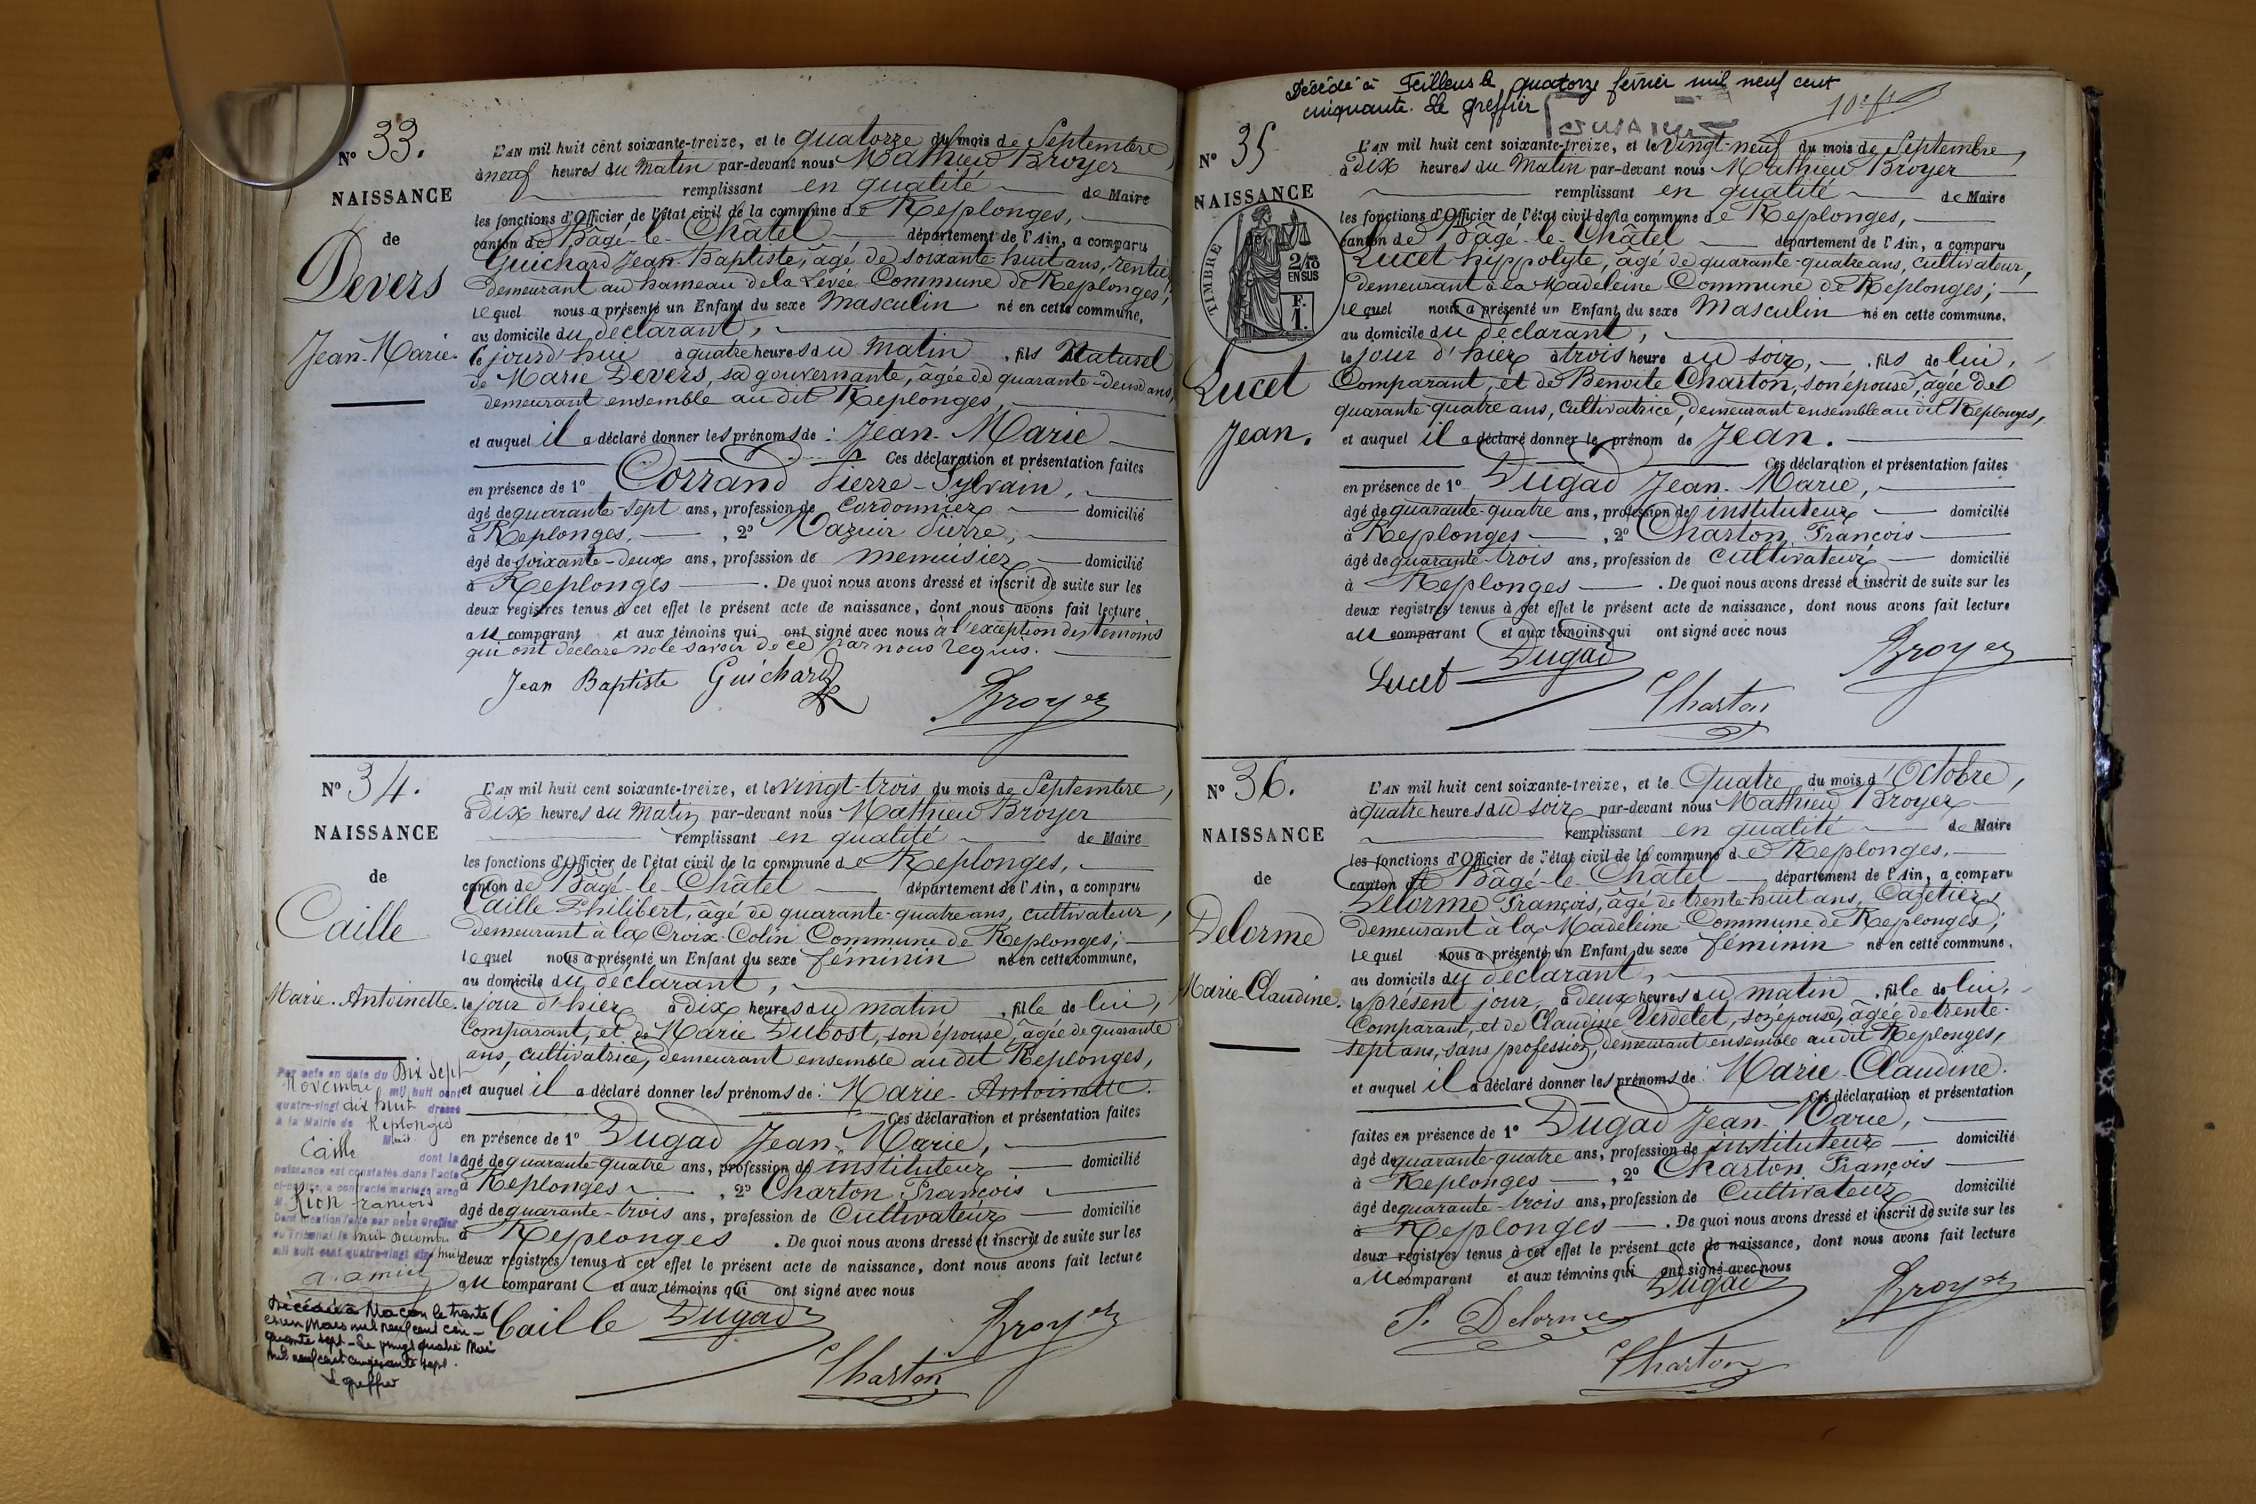 N° 33.
NAISSANCE
de
Devers
Jean-Marie.
L'AN mil huit cent soixante-treize, et le quatorze du mois de Septembre
à neuf heures du Matin par-devant nous Mathieu Broyer
remplissant en qualité de Maire
les fonctions d'Officier de l'état civil de la commune de Replonges,
canton de Bâgé-le-Châtel département de l'Ain, a comparu
Guichard Jean-Baptiste, âgé de soixante-huit ans, rentier
demeurant au hameau de la Levée Commune de Replonges;
lequel nous a présenté un Enfant du sexe Masculin né en cette commune,
au domicile du déclarant,
le jourd'hui à quatre heures du matin, fils Naturel
de Marie Devers, sa gouvernante, âgée de quarante-deux ans,
demeurant ensemble au dit Replonges,
et auquel il a déclaré donner les prénoms de : Jean-Marie
Ces déclaration et présentation faites
en présence de 1° Corrand Pierre-Sylvain,
âgé de quarante-sept ans, profession de Cordonnier domicilié
à Replonges, , 2° Mazuir Pierre,
âgé de soixante-deux ans, profession de menuisier domicilié
à Replonges . De quoi nous avons dressé et inscrit de suite sur les
deux registres tenus à cet effet le présent acte de naissance, dont nous avons fait lecture
au comparant et aux témoins qui ont signé avec nous à l'exception des témoins
qui ont déclaré ne le savoir de ce par nous requis.
Jean Baptiste Guichard
Broyer
N° 34.
NAISSANCE
de
Caille
Marie-Antoinette.
L'AN mil huit cent soixante-treize, et le vingt-trois du mois de Septembre,
à dix heures du Matin par-devant nous Mathieu Broyer
remplissant en qualité de Maire
les fonctions d'Officier de l'état civil de la commune de Replonges,
canton de Bâgé-le-Châtel département de l'Ain, a comparu
Caille Philibert, âgé de quarante-quatre ans, cultivateur,
demeurant à la Croix-Colin Commune de Replonges;
lequel nous a présenté un Enfant du sexe féminin né en cette commune,
au domicile du déclarant,
le jour d'hier à dix heures du matin, fille de lui,
Comparant, et de Marie Dubost, son épouse, âgée de quarante
ans, cultivatrice, demeurant ensemble au dit Replonges,
et auquel il a déclaré donner les prénoms de : Marie-Antoinette.
Ces déclaration et présentation faites
en présence de 1° Dugad Jean-Marie,
âgé de quarante-quatre ans, profession de instituteur domicilié
à Replonges , 2° Charton François
âgé de quarante-trois ans, profession de Cultivateur domicilié
à Replonges . De quoi nous avons dressé et inscrit de suite sur les
deux registres tenus à cet effet le présent acte de naissance, dont nous avons fait lecture
au comparant et aux témoins qui ont signé avec nous
Caille Dugad Broyer
Charton
Par acte en date du Dix Sept
Novembre mil huit cent
quatre-vingt dix huit dressé
à la Mairie de Replonges
Caille dont la
naissance est constatée dans l'acte
ci-contre, a contracté mariage avec
M Rion françois
Dont mention faite par nous Greffier
du Tribunal le huit Décembre
mil huit cent quatre-vingt dix huit
Décédée à Macon le trente
et un Mars mil neuf cent cin-
quante sept - Le vingt quatre Mai
mil neuf cent cinquante sept.
Le greffier
Décédé à Feillens le quatorze février mil neuf cent
cinquante. Le greffier
N° 35
NAISSANCE
TIMBRE
2/10
EN SUS
F.
1.
Lucet
Jean.
L'AN mil huit cent soixante-treize, et le vingt-neuf du mois de Septembre,
à dix heures du Matin par-devant nous Mathieu Broyer
remplissant en qualité de Maire
les fonctions d'Officier de l'état civil de la commune de Replonges,
canton de Bâgé-le-Châtel département de l'Ain, a comparu
Lucet hippolyte, âgé de quarante-quatre ans, cultivateur,
demeurant à la Madeleine Commune de Replonges;
lequel nous a présenté un Enfant du sexe Masculin né en cette commune,
au domicile du déclarant,
le jour d'hier à trois heure du soir, fils de lui,
Comparant, et de Benoite Charton, son épouse, âgée de
quarante-quatre ans, Cultivatrice, demeurant ensemble au dit Replonges,
et auquel il a déclaré donner le prénom de Jean.
Ces déclaration et présentation faites
en présence de 1° Dugad Jean-Marie,
âgé de quarante-quatre ans, profession de instituteur domicilié
à Replonges , 2° Charton François
âgé de quarante-trois ans, profession de cultivateur domicilié
à Replonges . De quoi nous avons dressé et inscrit de suite sur les
deux registres tenus à cet effet le présent acte de naissance, dont nous avons fait lecture
au comparant et aux témoins qui ont signé avec nous
Lucet Dugad Broyer
Charton
N° 36.
NAISSANCE
de
Delorme
Marie-Claudine.
L'AN mil huit cent soixante-treize, et le Quatre du mois d'Octobre,
à quatre heures du soir par-devant nous Mathieu Broyer
remplissant en qualité de Maire
les fonctions d'Officier de l'état civil de la commune de Replonges,
canton de Bâgé-le-Châtel département de l'Ain, a comparu
Delorme François, âgé de trente-huit ans, Cafetier,
demeurant à la Madeleine Commune de Replonges;
lequel nous a présenté un Enfant du sexe féminin né en cette commune,
au domicile du déclarant,
le présent jour, à deux heures du matin, fille de lui,
Comparant, et de Claudine Verdelet, son épouse, âgée de trente-
sept ans, sans profession, demeurant ensemble au dit Replonges,
et auquel il a déclaré donner les prénoms de : Marie-Claudine.
Ces déclaration et présentation
faites en présence de 1° Dugad Jean-Marie,
âgé de quarante-quatre ans, profession de instituteur domicilié
à Replonges , 2° Charton François
âgé de quarante-trois ans, profession de Cultivateur domicilié
à Replonges . De quoi nous avons dressé et inscrit de suite sur les
deux registres tenus à cet effet le présent acte de naissance, dont nous avons fait lecture
au comparant et aux témoins qui ont signé avec nous
F. Delorme Dugad Broyer
Charton